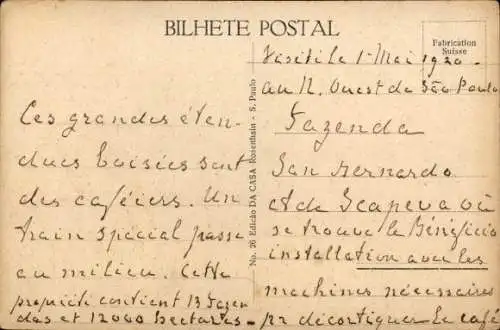 BILHETE POSTAL
Fabrication
Suisse
Visité le 1 Mai 1920
au N. Ouest de São Paulo
Ces grandes éten-
dues boisées sont
des caféiers. Un
train spécial passe
au milieu. Cette
propriété contient 13 fazen
das et 12000 hectares -
No. 26 Edição DA CASA Rosenhain - S. Paulo
Fazenda
San Bernardo
et de où
se trouve le Bénéficio
installation avec les
machines nécessaires
pr décortiquer le café